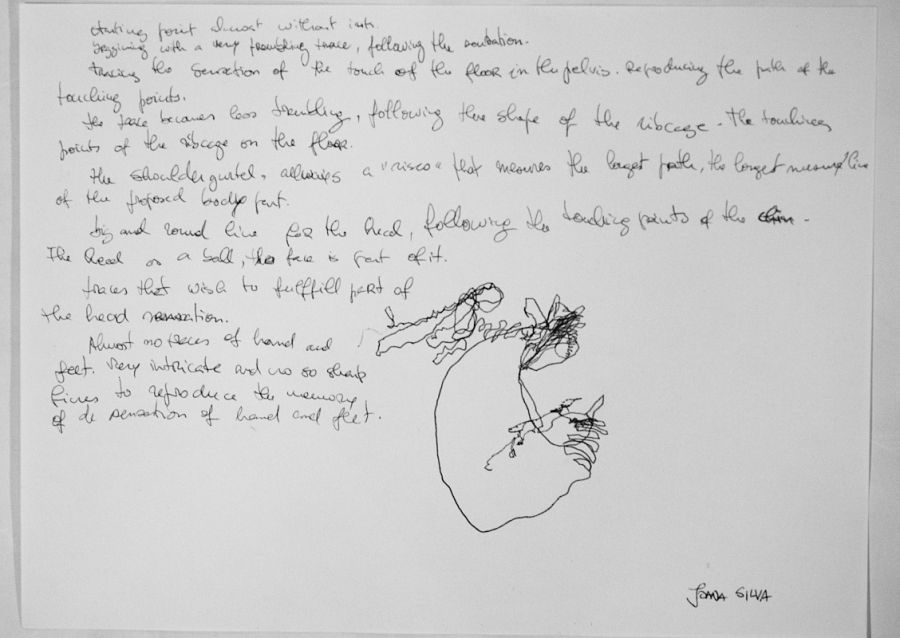 starting point almost without ink.
beggining with a very trembling trace, following the
tracing the sensation of the touch of the floor in the pelvis. Reproducing the path of the
touching points.
the trace becomes less trembling, following the shape of the ribcage. The touching
points of the ribcage on the floor.
the shoulder gurtel, allways a "risco" that mesures the longest path, the longest line
of the proposed body part.
big and round line for the head, following the touching points of the
The head as a ball, the face is part of it.
traces that wish to fullffill part of
the head
Almost no traces of hand and
feet. Very intricate and no so sharp
lines to reproduce the memory
of de sensation of hand and feet.
JOANA SILVA